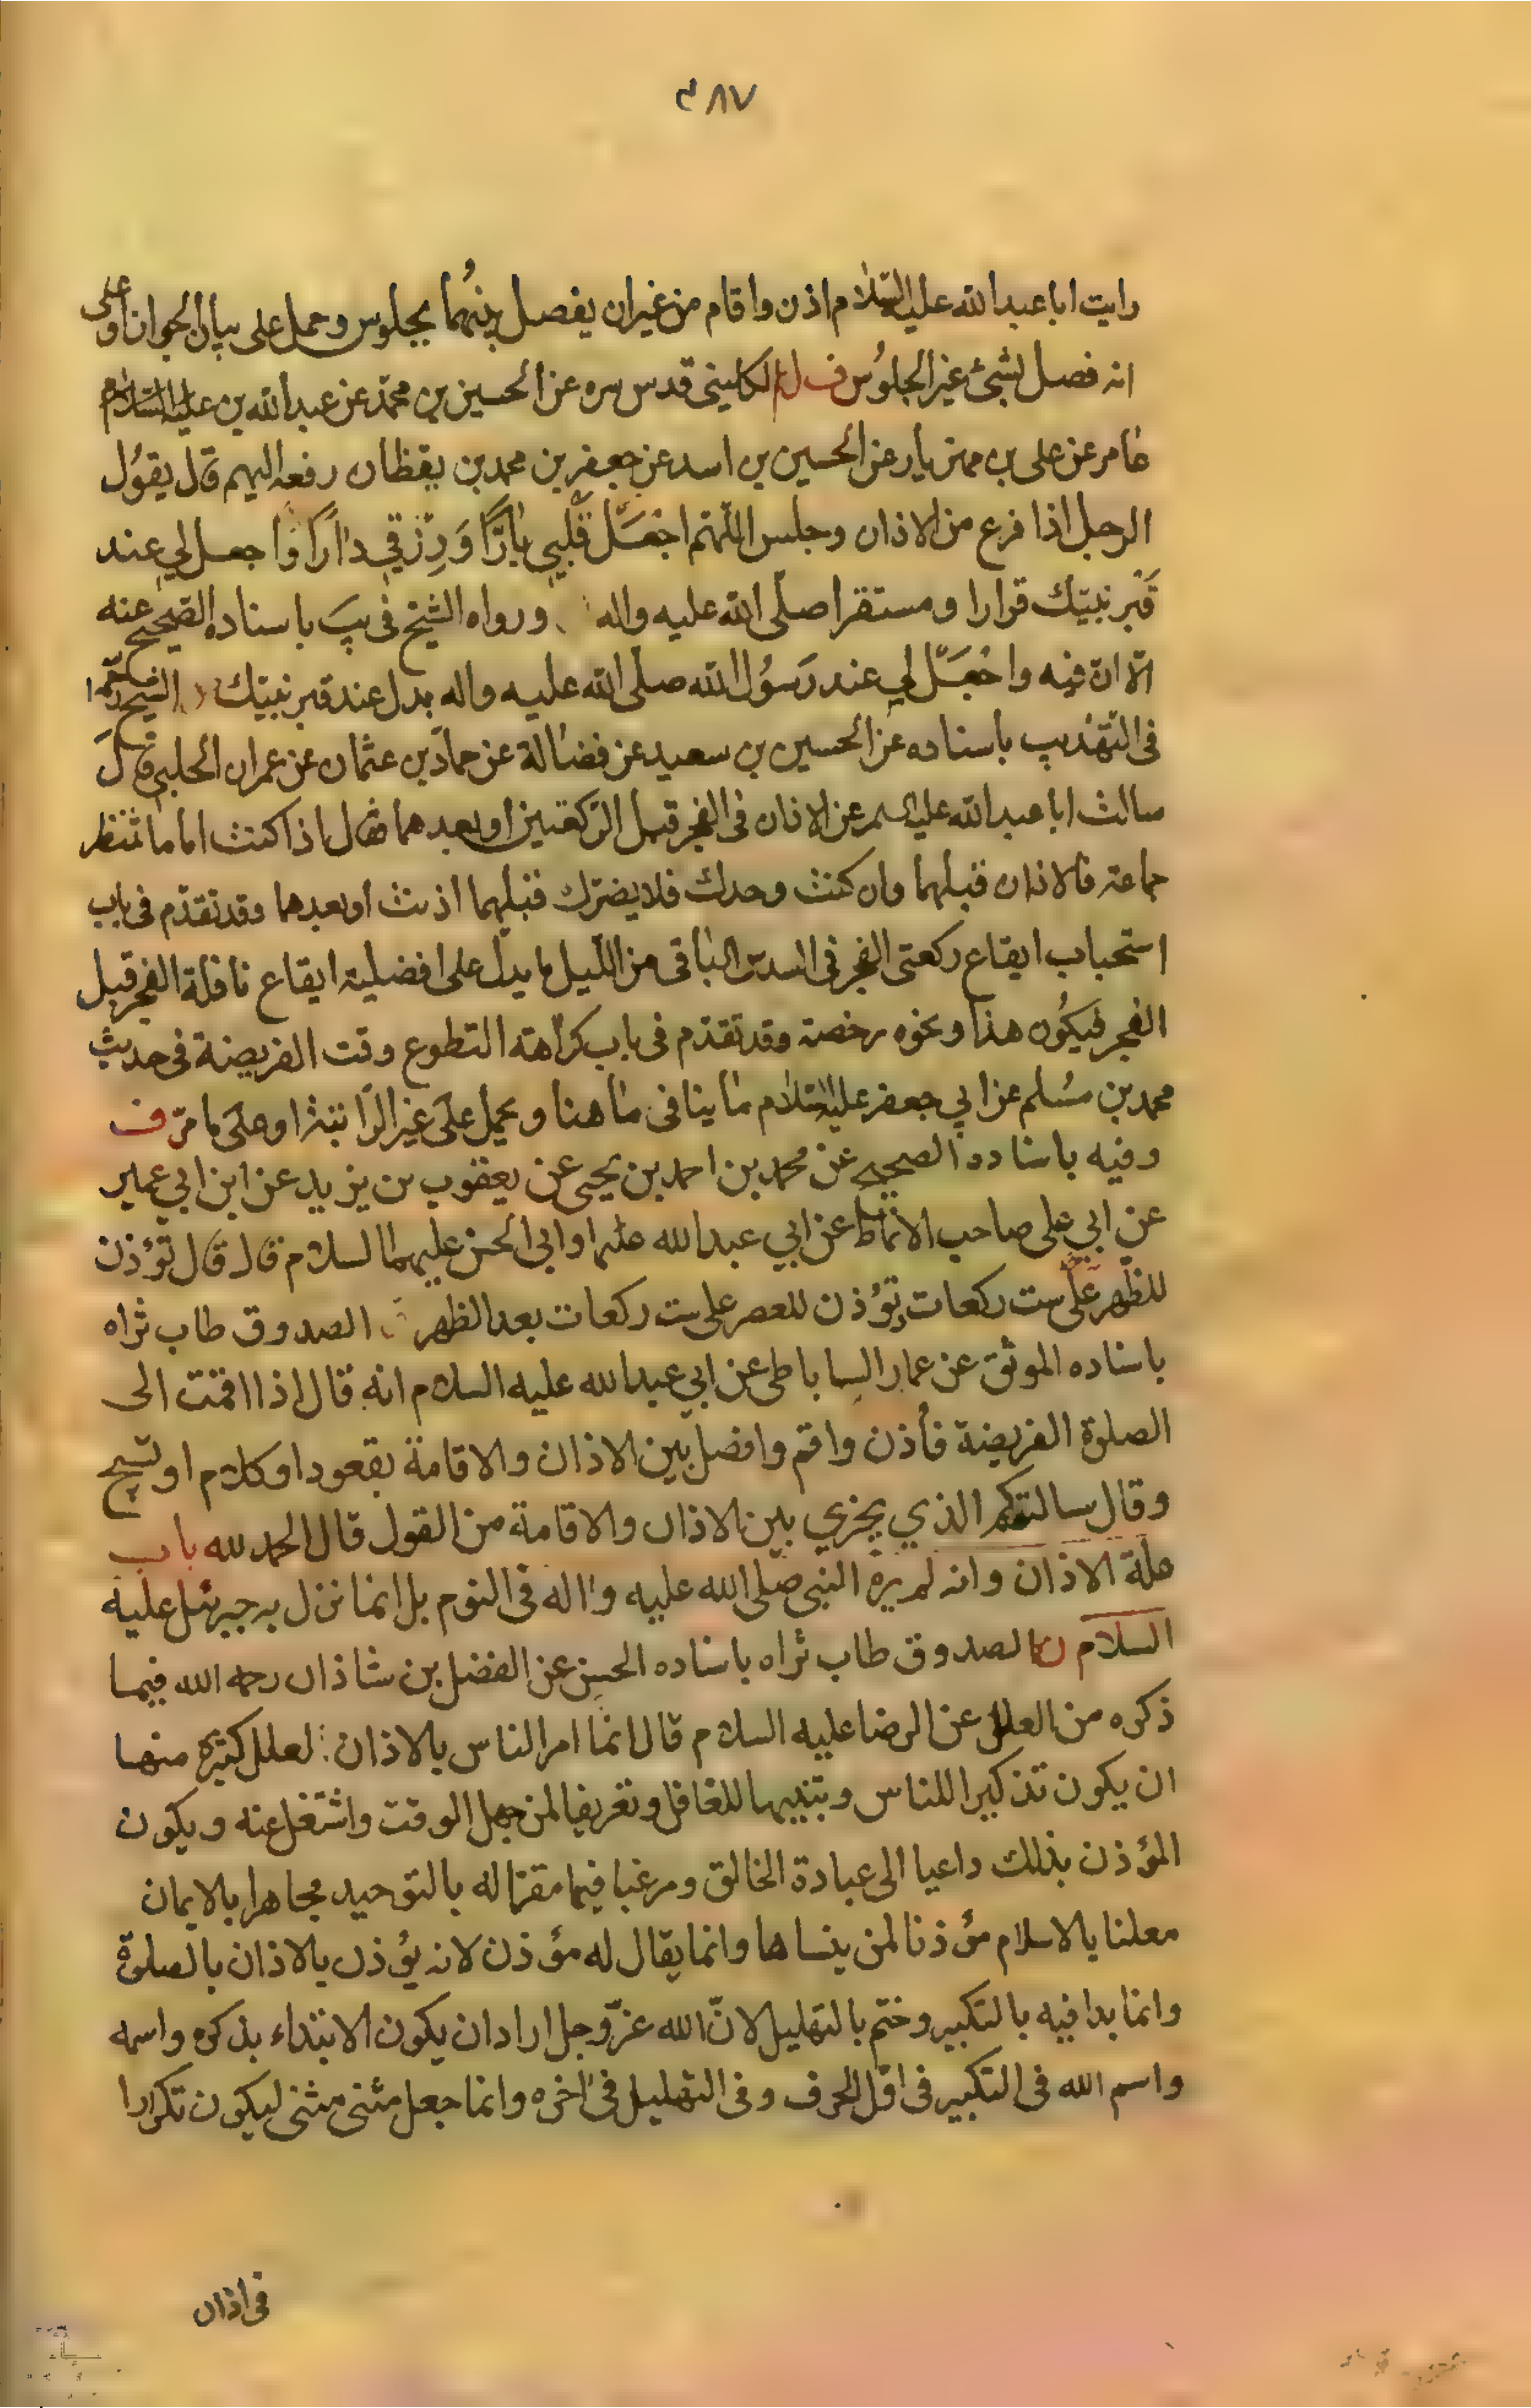 ٣٨٧
رايت ابا عبد الله عليه السلام اذن واقام من غير ان يفصل بينهما بجلوس وحمل على بيان الجواز او على
انه فصل بشئ غير الجلوس ف الكليني قدس سره عن الحسين بن محمد عن عبد الله بن عليه السلام
عامر عن على بن مهزيار عن الحسين بن اسد عن جعفر بن محمد بن يقظان رفعه اليهم قال يقول
الرجل اذا فرغ من الاذان وجلس اللهم اجعل قلبي بارا وَرِزقي دارا واجعل لي عند
قبر نبيك قرارا ومستقرا صلى الله عليه واله ورواه الشيخ فى يب باسناده الصحيح عنه
الا ان فيه واجعل لي عند رسول الله صلى الله عليه واله بدل عند قبر نبيك الشيخ
فى التهذيب باسناده عن الحسين بن سعيد عن فضالة عن حماد بن عثمان عن عمران الحلبي قال
سالت ابا عبد الله عليه السلم عن الاذان فى الفجر قبل الركعتين او بعدهما فقال اذا كنت اماما تنتظر
جماعة فالاذان قبلهما وان كنت وحدك فلا يضرك قبلهما اذنت او بعدهما وقد تقدم فى باب
استحباب ايقاع ركعتى الفجر فى السدس الباقى من الليل ما يدل على افضلية ايقاع نافلة الفجر قبل
الفجر فيكون هذا ونحوه رخصة وقد تقدم فى باب كراهة التطوع وقت الفريضة فى حديث
محمد بن مسلم عن ابي جعفر عليه السلام ما ينافى ما هنا ويحمل على غير الراتبة او على ما مر ف
وفيه باسناده الصحيح عن محمد بن احمد بن يحيى عن يعقوب بن يزيد عن ابن ابي عمير
عن ابي على صاحب الانماط عن ابي عبد الله او ابى الحسن عليهما السلام قال قال تؤذن
للظهر على ست ركعات وتؤذن للعصر على ست ركعات بعد الظهر الصدوق طاب ثراه
باسناده الموثق عن عمار الساباطى عن ابي عبد الله عليه السلام انه قال اذا اقمت الى
الصلوة الفريضة فأذن واقم وافصل بين الاذان والاقامة بقعود او كلام او تسبيح
وقال سالته كم الذي يجزي بين الاذان والاقامة من القول قال الحمد لله باب
علة الاذان وانه لم يره النبى صلى الله عليه واله فى النوم بل انما نزل به جبرئيل عليه
السلام الصدوق طاب ثراه باسناده الحسن عن الفضل بن شاذان رحمه الله فيما
ذكره من العلل عن الرضا عليه السلام قال انما امر الناس بالاذان لعلل كثيرة منها
ان يكون تذكيرا للناس وتنبيها للغافل وتعريفا لمن جهل الوقت واشتغل عنه ويكون
المؤذن بذلك داعيا الى عبادة الخالق ومرغبا فيها مقرا له بالتوحيد مجاهرا بالايمان
معلنا بالاسلام مؤذنا لمن ينساها وانما يقال له مؤذن لانه يؤذن بالاذان بالصلوة
وانما بدا فيه بالتكبير وختم بالتهليل لانّ الله عزّ وجل اراد ان يكون الابتداء بذكره واسمه
واسم الله فى التكبير فى اوّل الحرف وفى التهليل فى اخره وانما جعل مثنى مثنى ليكون تكرارا
فى اذان